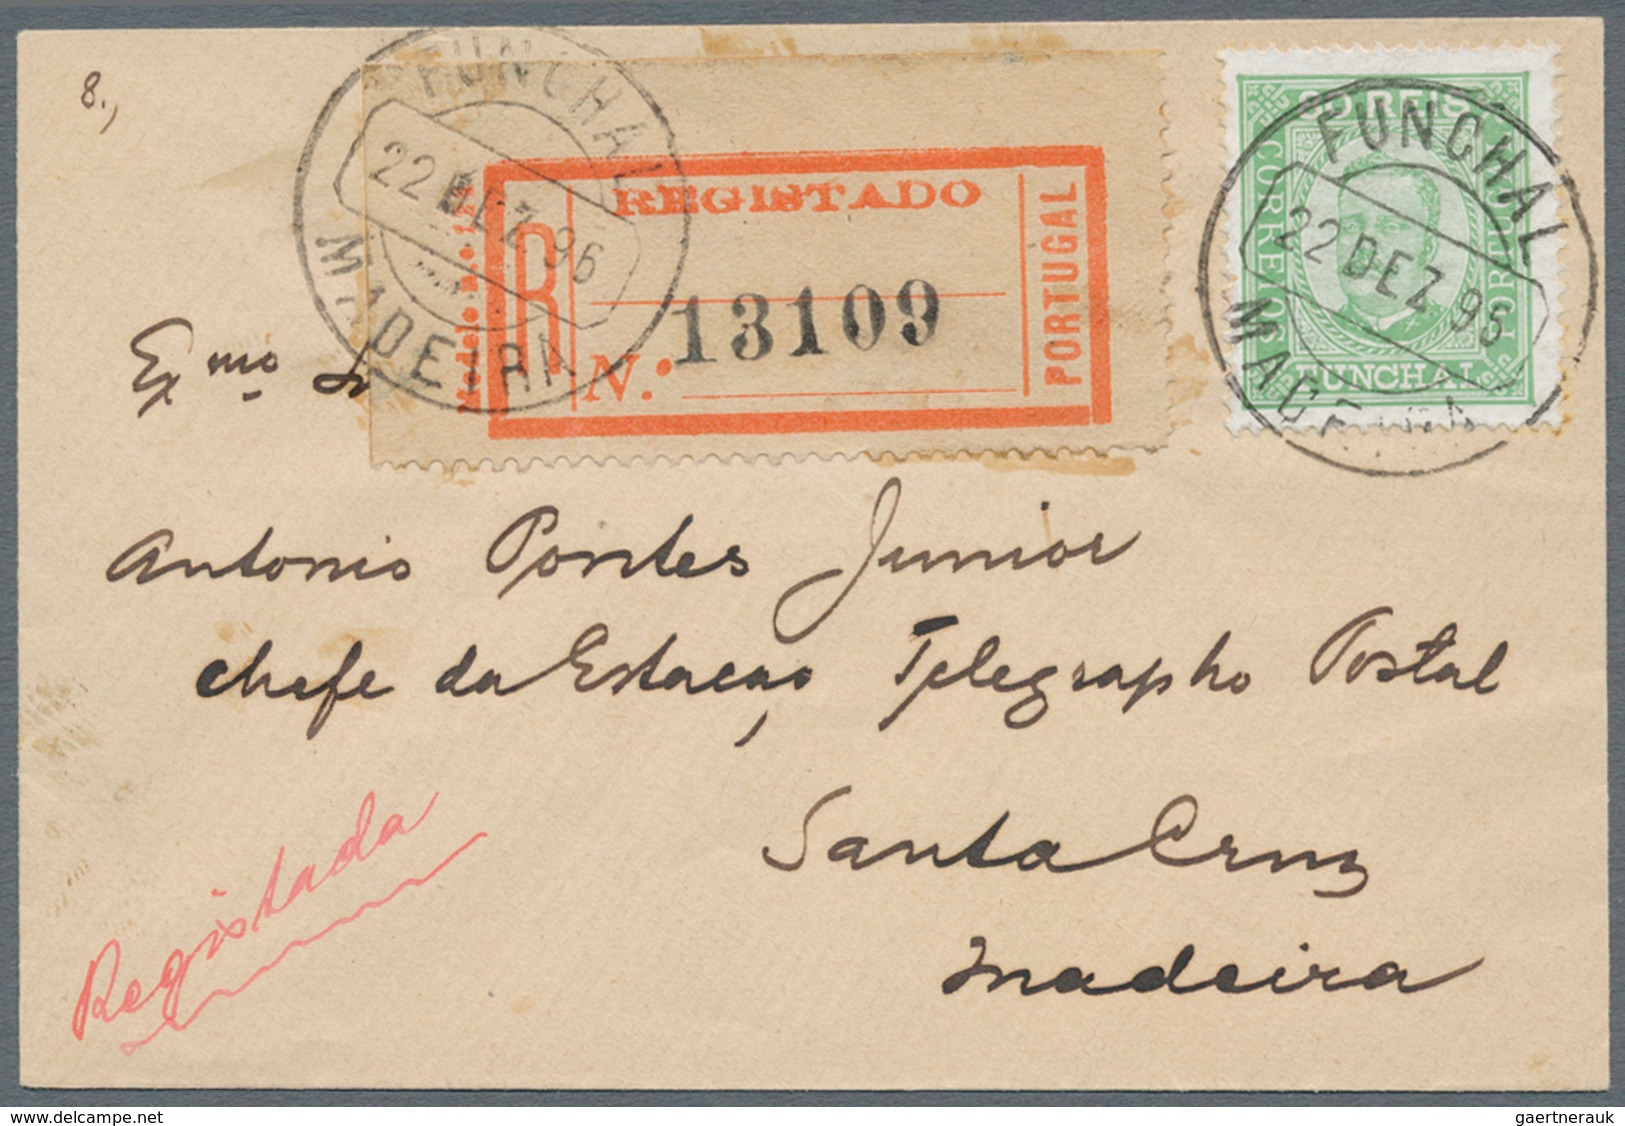 8.,
FUNCHAL
22 DEZ 96
MADEIRA
REGISTADO
R
N.º 13109
PORTUGAL
REIS
CORREIOS
FUNCHAL
FUNCHAL
22 DEZ 96
MADEIRA
Exmo Sr
Antonio Pontes Junior
Chefe da Estação Telegrapho Postal
Santa Cruz
Madeira
Registada
www.delcampe.net
gaertnerauk